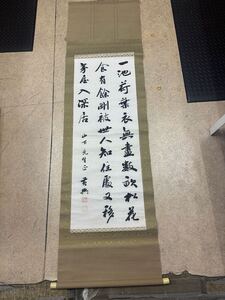 一池荷葉衣無盡數畝松花
食有餘剛被世人知住處又移
茅屋入深居 山下先生正 黄興